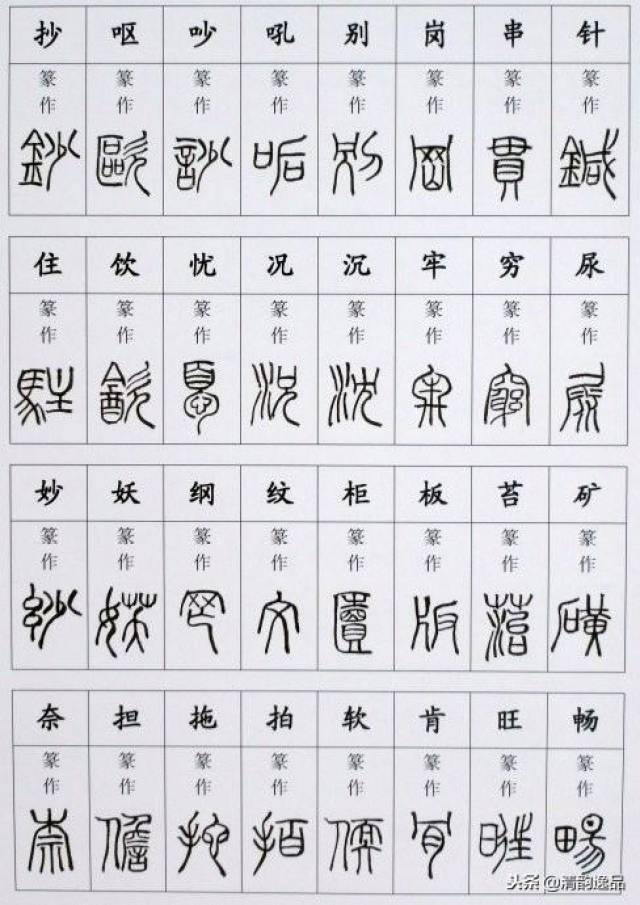 抄 呕 吵 吼 别 岗 串 针
篆 篆 篆 篆 篆 篆 篆 篆
作 作 作 作 作 作 作 作
住 饮 忧 况 沉 牢 穷 尿
篆 篆 篆 篆 篆 篆 篆 篆
作 作 作 作 作 作 作 作
妙 妖 纲 纹 柜 板 苔 矿
篆 篆 篆 篆 篆 篆 篆 篆
作 作 作 作 作 作 作 作
奈 担 拖 拍 软 肯 旺 畅
篆 篆 篆 篆 篆 篆 篆 篆
作 作 作 作 作 作 作 作
头条@清韵逸品